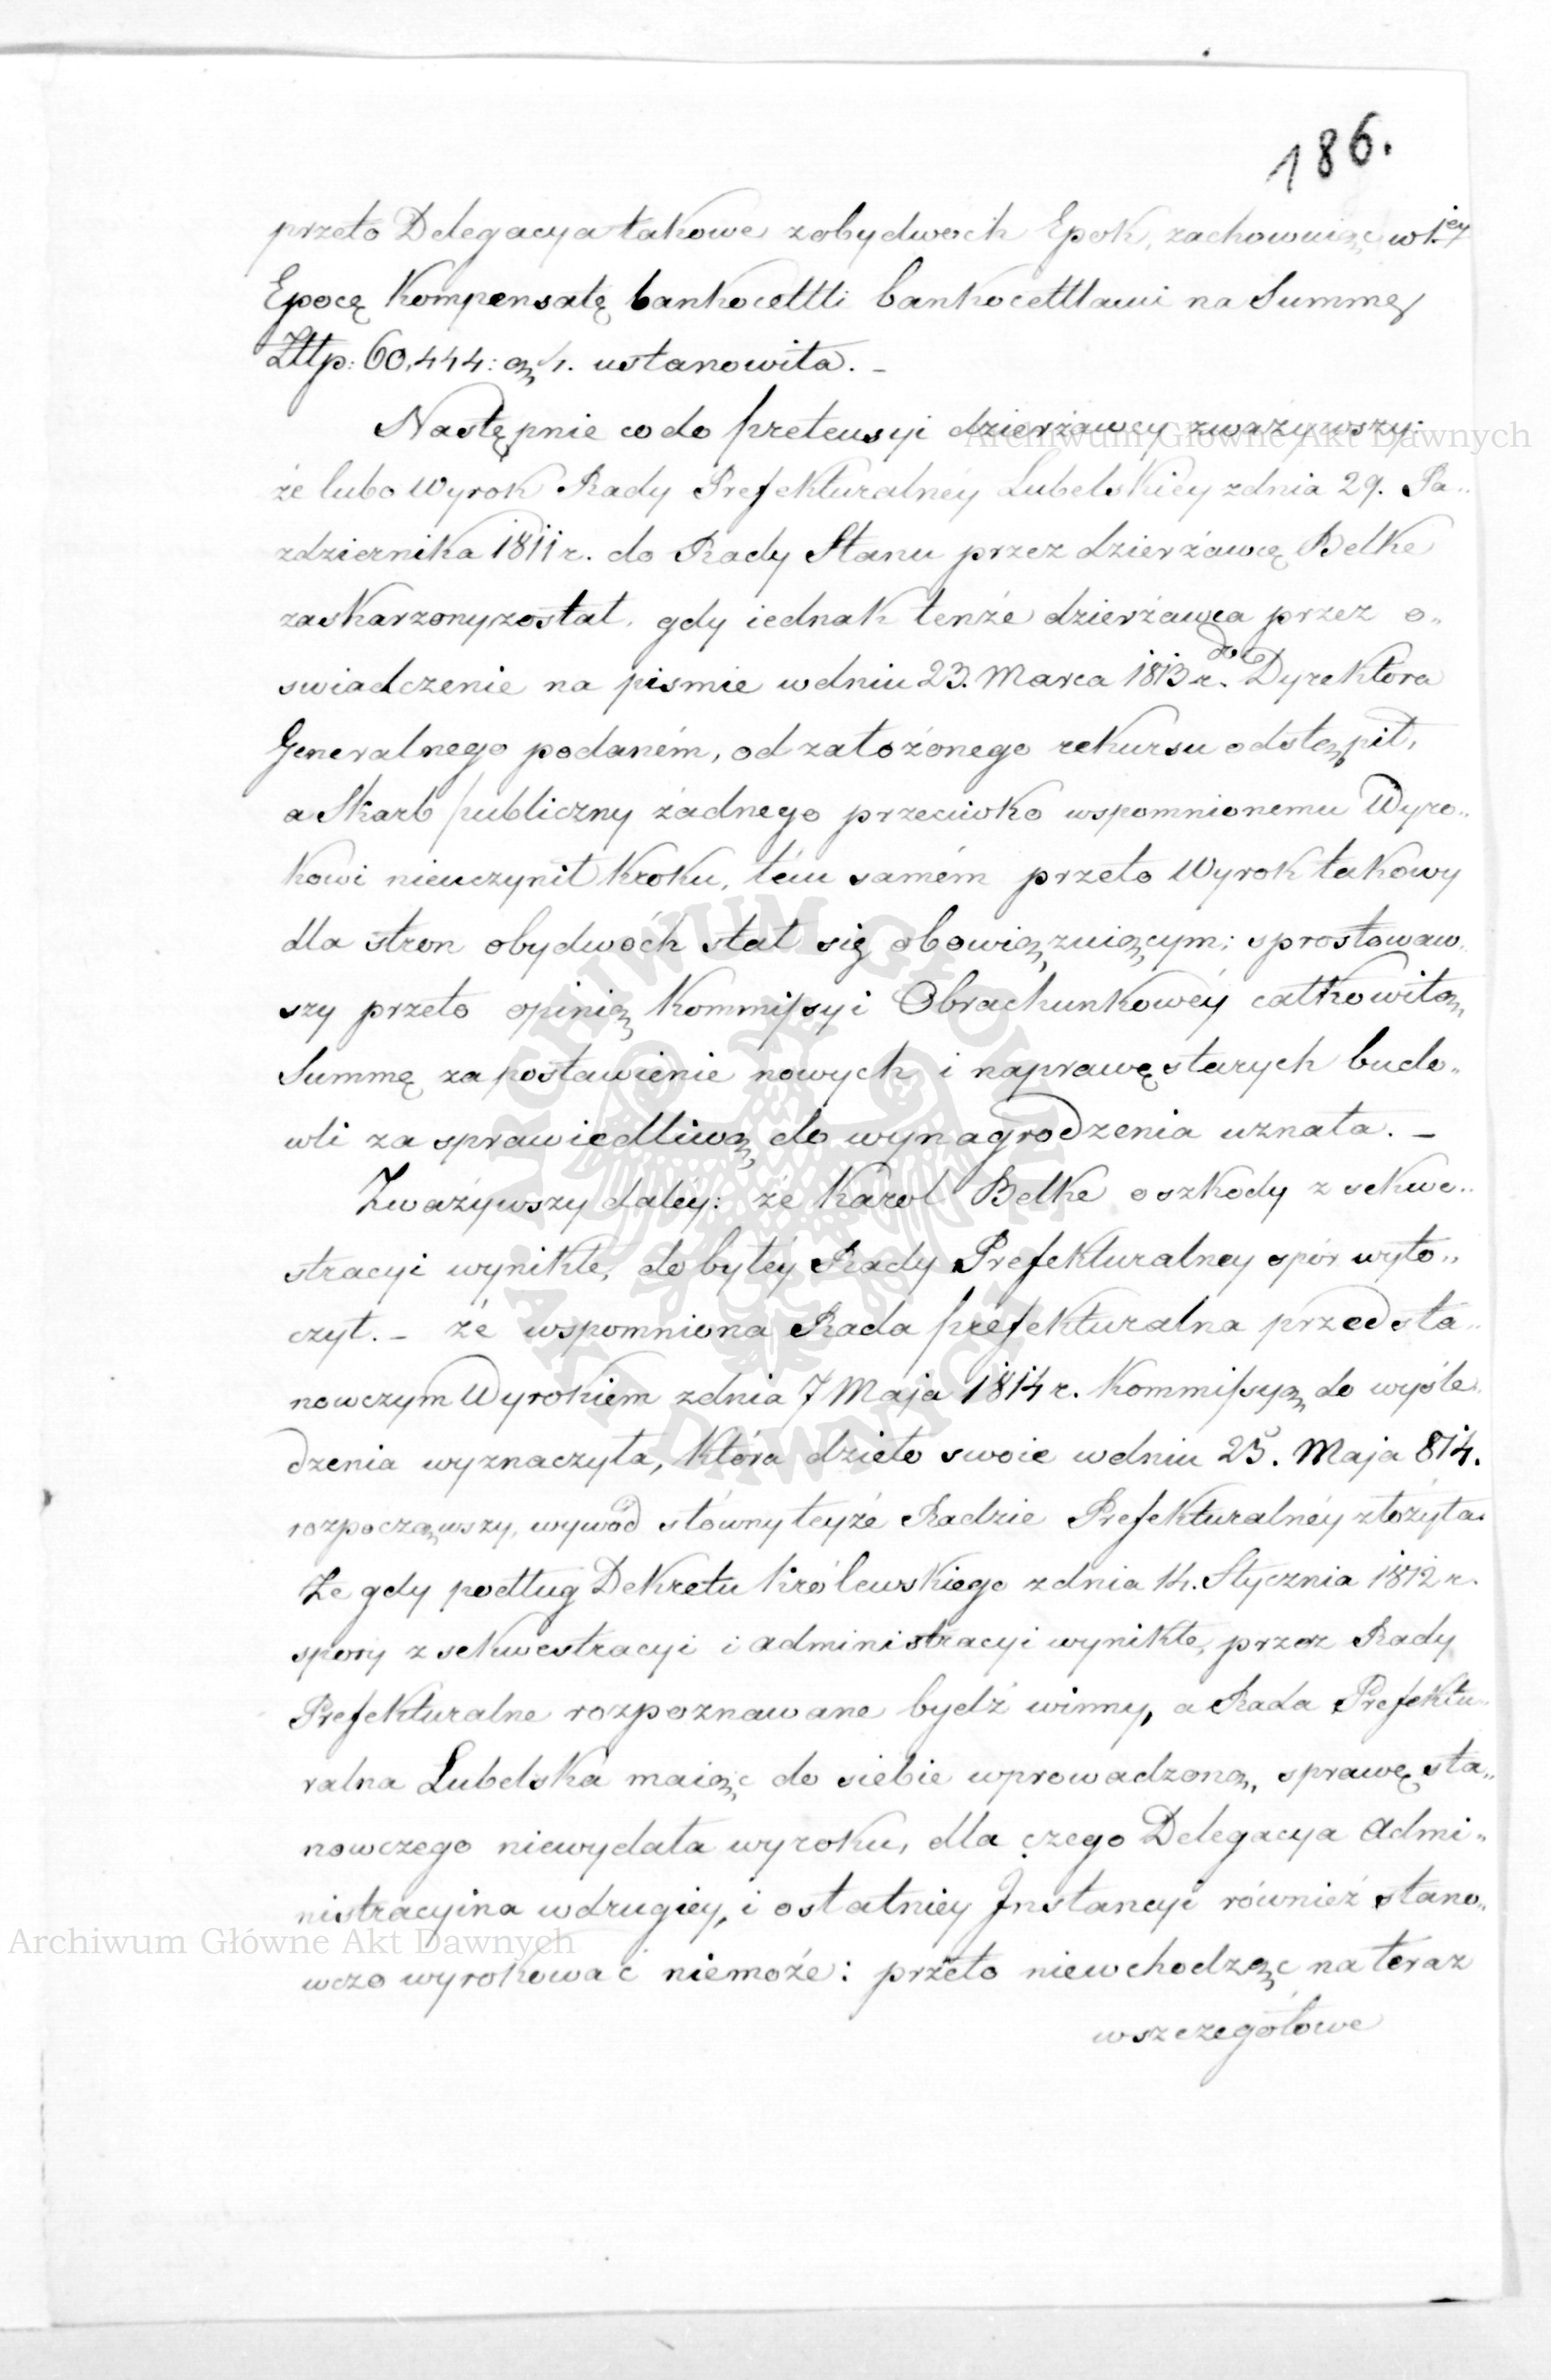 186.
przeto Delegacya takowe z obydwoch Epok, zachowuiąc w 1.ey
Epocę Kompensatę bankocettli bankocettlami na Summę
Złtp: 60,444: ustanowiła. –
Następnie co do pretensyi dzierżawcy zważywszy:
że lubo Wyrok Rady Prefekturalnéy Lubelskiéy z dnia 29. Pa„
zdziernika 1811 r. do Rady Stanu przez dzierżawcę Belke
zaskarzony został, gdy iednak tenże dzierżawca przez o„
swiadczenie na pismie w dniu 23. Marca 1813 r. do Dyrektora
Generalnego podaném, od założonego rekursu odstąpił,
a Skarb publiczny żadnego przeciwko wspomnionemu Wyro„
kowi nieuczynił kroku, tém samém przeto Wyrok takowy
dla stron obydwóch stał się obowiązuiącym; sprostowaw„
szy przeto opinią Kommissyi Obrachunkowéy całkowitą
Summę za postawienie nowych i naprawę starych budo„
wli za sprawiedliwą do wynagrodzenia uznała. –
Zważywszy daléy: że Karol Belke o szkody z sekwe„
stracyi wynikłe, do byłéy Rady Prefekturalney spór wyto„
czył. – że wspomniona Rada prefekturalna przedsta„
nowczym Wyrokiem z dnia 7 Maja 1814 r. Kommissyą do wyśle„
dzenia wyznaczyła, która dzieło swoie w dniu 25. Maja 814.
rozpocząwszy, wywód słówny teyże Radzie Prefekturalnéy złożyła.
Ze gdy podług Dekretu Królewskiego z dnia 14. Stycznia 1812 r.
spory z sekwestracyi i administracyi wynikłe, przez Rady
Prefekturalne rozpoznawane bydź winny, a Rada Prefektu„
ralna Lubelska maiąc do siebie wprowadzoną, sprawę sta„
nowczego niewydała wyroku, dla czego Delegacya Admi„
nistracyina w drugiey, i ostatniey Instancyi również stano„
wczo wyrokować niemoże: przeto niewchodząc na teraz
w szczegółowe
Archiwum Główne Akt Dawnych
ARCHIWUM GŁÓWNE AKT DAWNYCH
Archiwum Główne Akt Dawnych